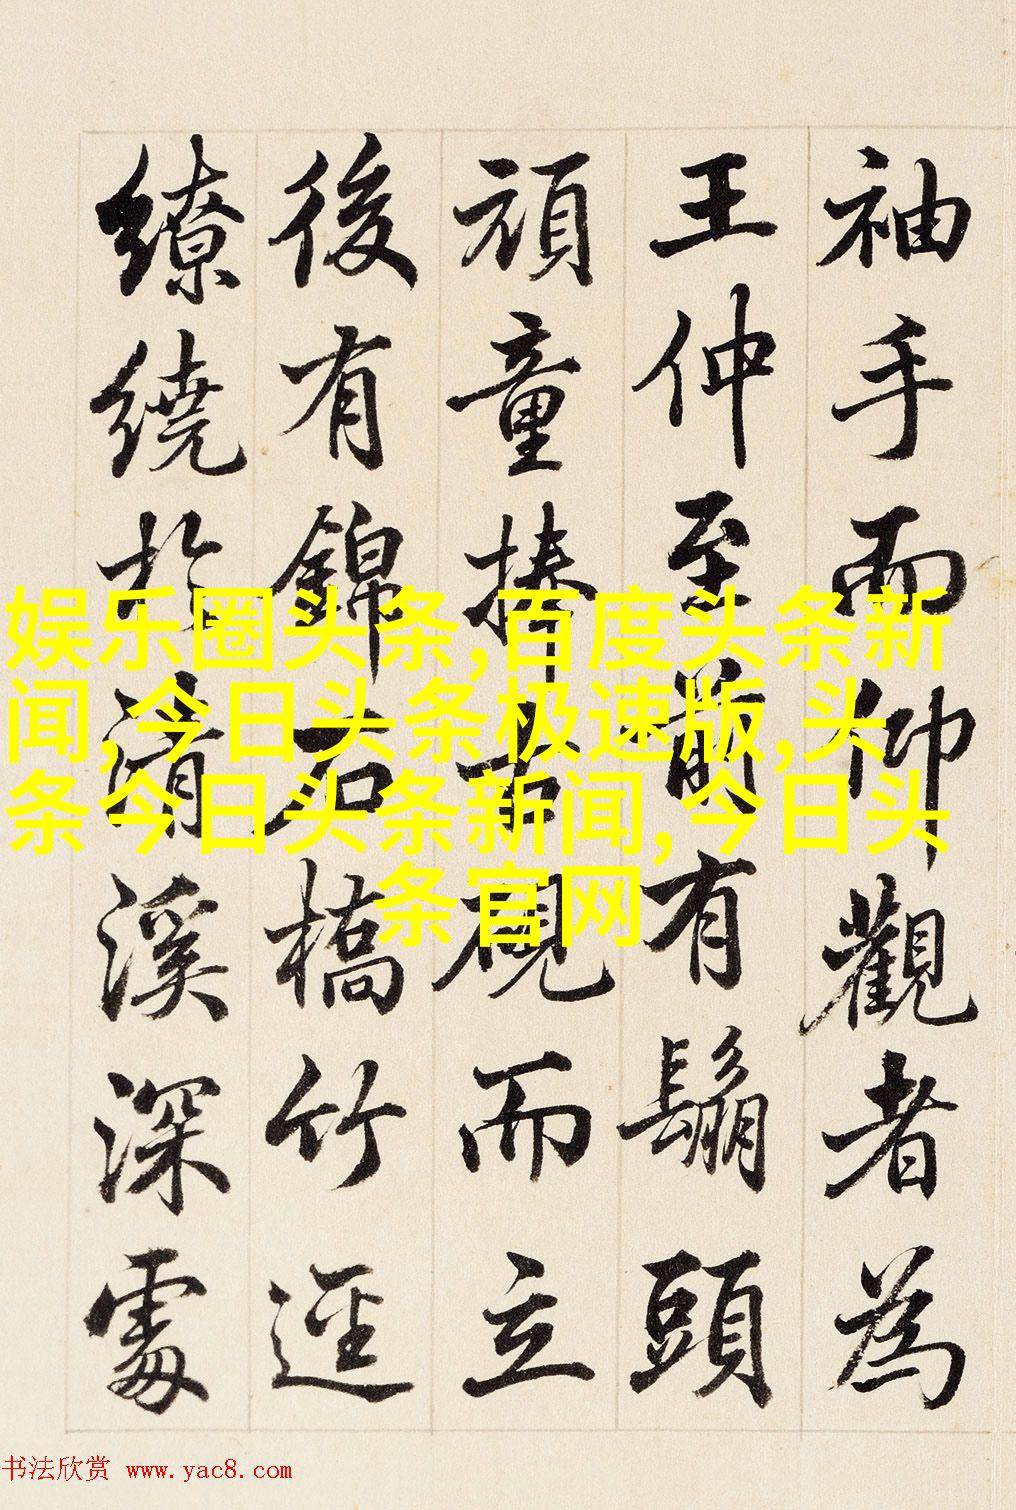 袖手而仰觀者為
王仲至前有鬅頭
頑童捧古硯而立
後有錦石橋竹逕
繚繞於清溪深處
娱乐圈头条,百度头条新
闻,今日头条极速版,头
条今日头条新闻,今日头
条官网
书法欣赏 www.yac8.com